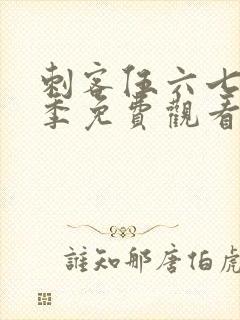 刺客伍六七
季免費觀看
誰知那唐伯虎